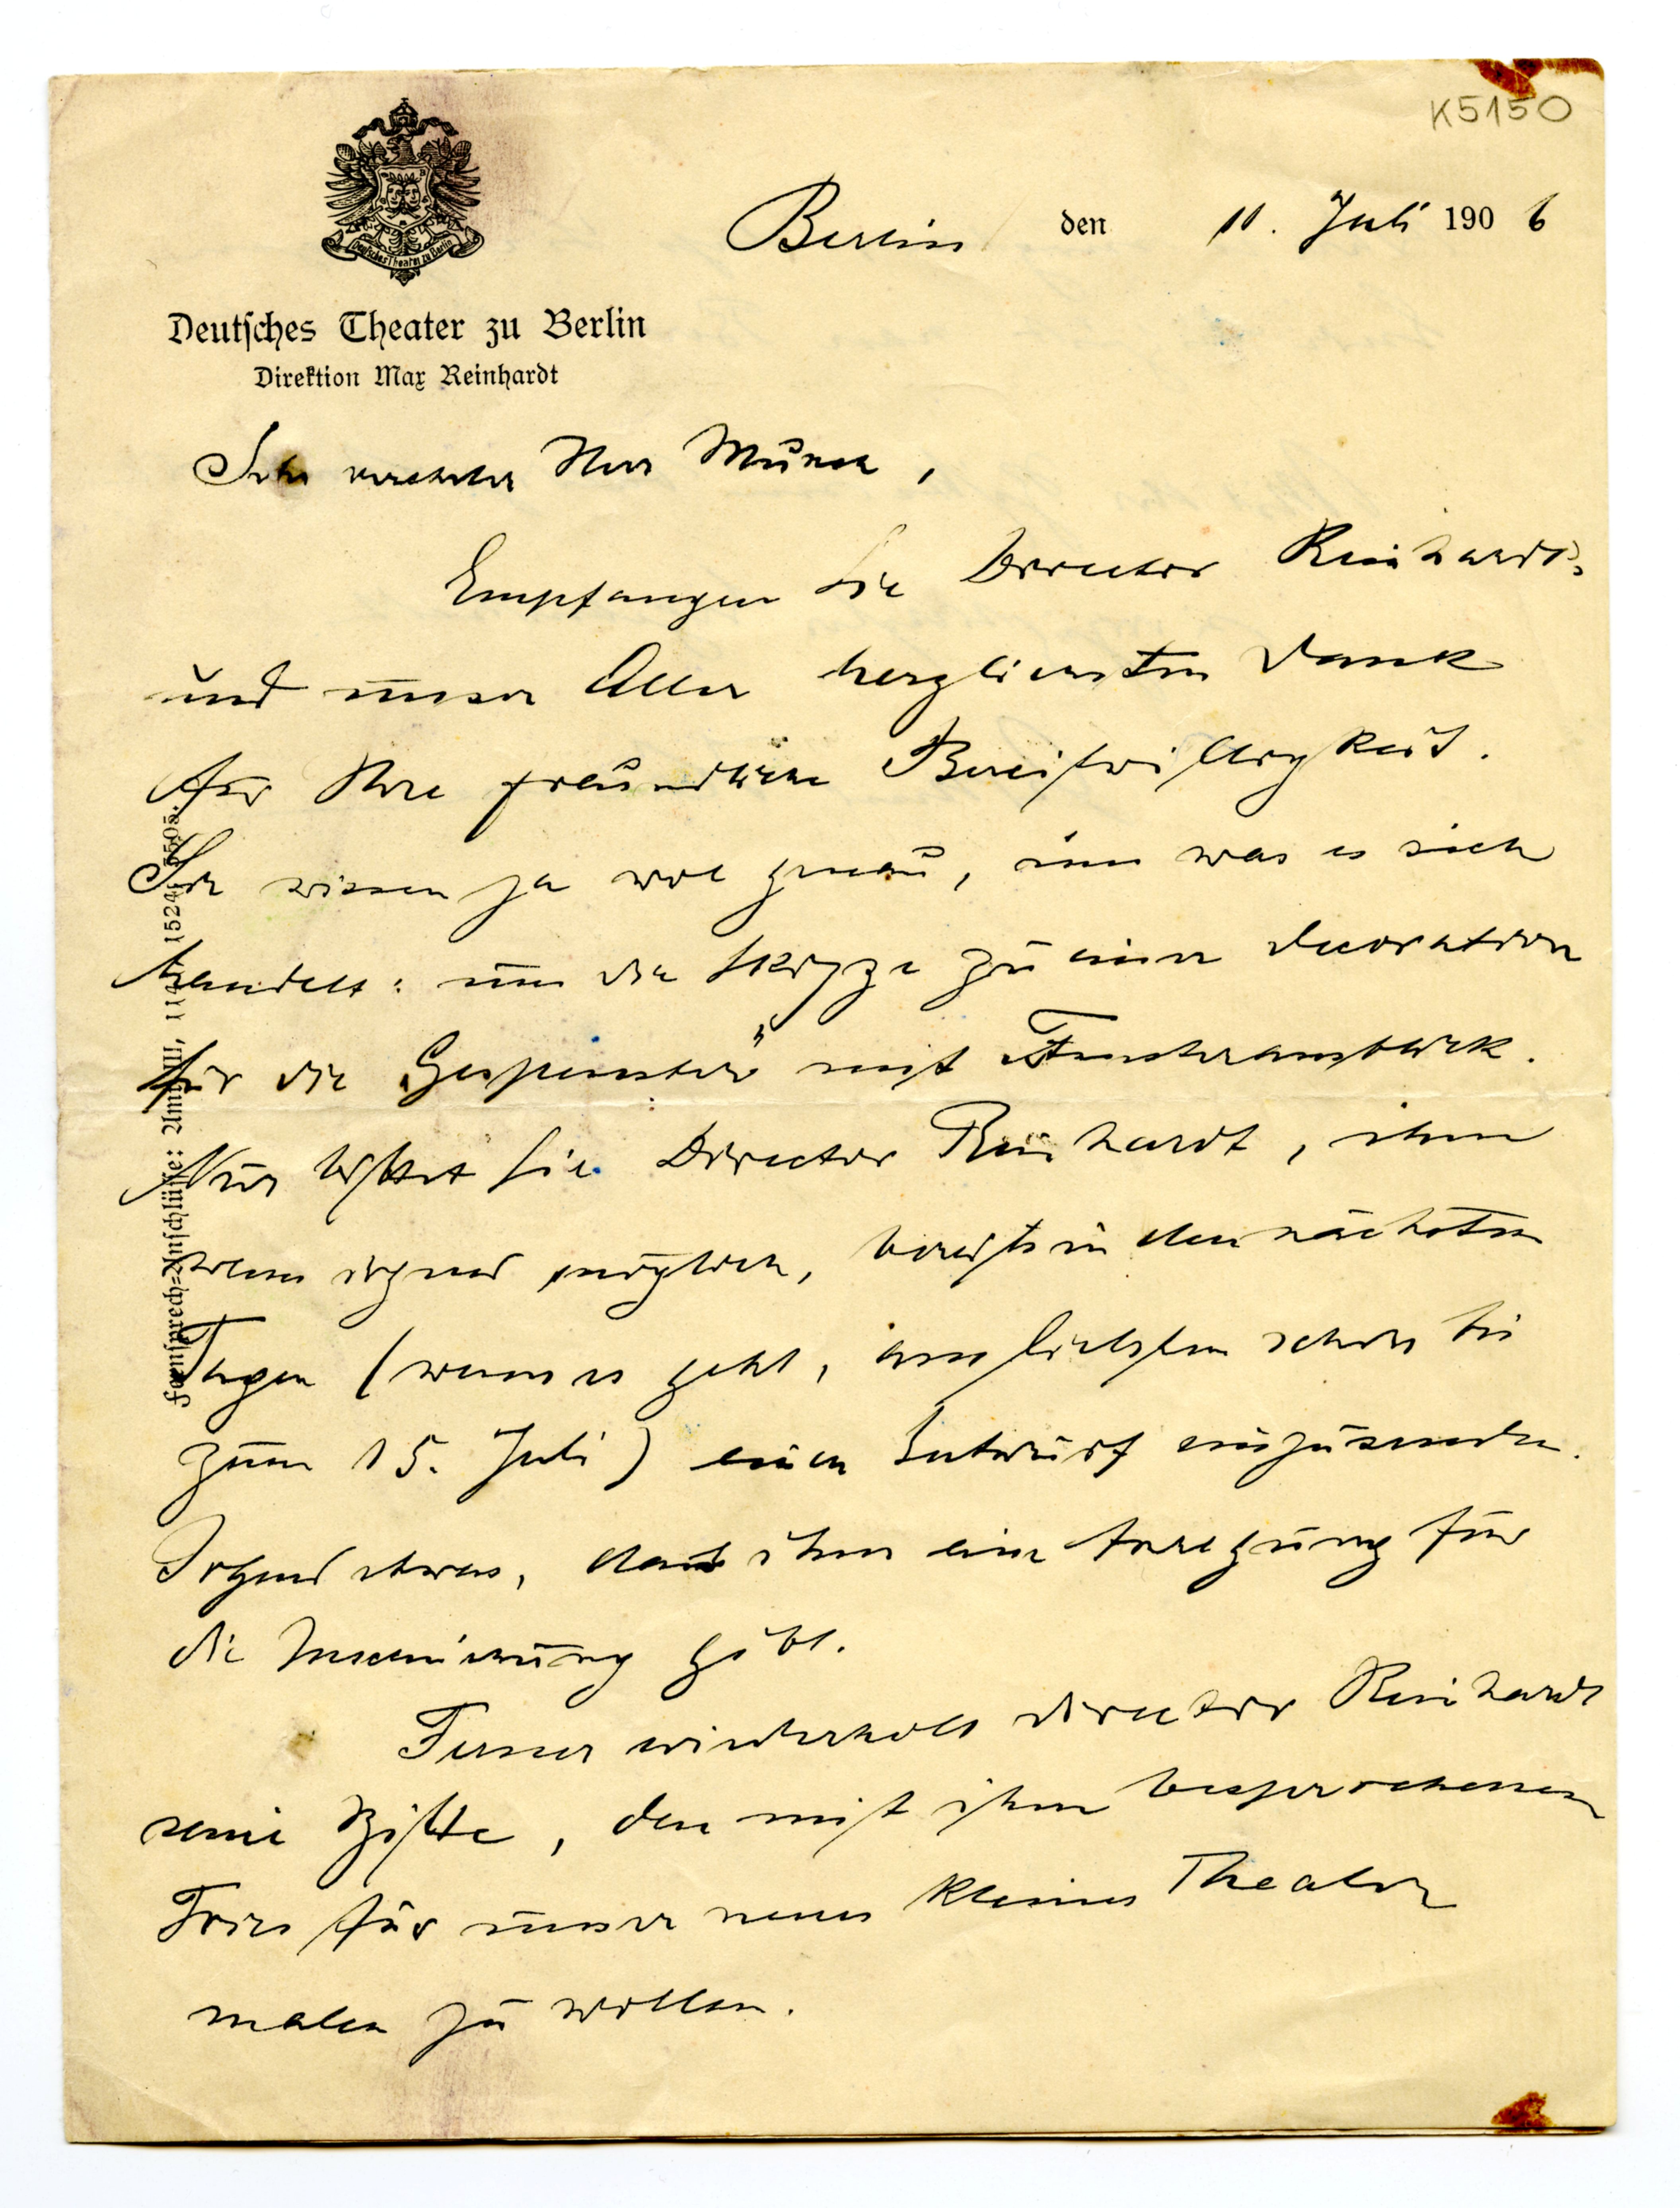 K5150
Deutsches Theater zu Berlin
Berlin den 11. Juli 1906
Deutsches Theater zu Berlin
Direktion Max Reinhardt
Sehr verehrter Herr Munch,
Empfangen Sie Director Reinhardts
und unser Aller herzlichsten Dank
für Ihre freundliche Bereitwilligkeit.
Sie wissen ja wol genau, um was es sich
handelt: um die Skizze zu einer Decoration
für die „Gespenster" mit Fensterausblick.
Nur bittet Sie Director Reinhardt, ihm
wenn irgend möglich, bereits in den nächsten
Tagen (wenn es geht, am liebsten schon bis
zum 15. Juli) einen Entwurf einzusenden.
Irgend etwas, das ihm eine Anregung für
die Inscenierung gibt.
Ferner wiederholt Director Reinhardt
seine Bitte, den mit ihm besprochenen
Fries für unser neues kleines Theater
malen zu wollen.
Fernsprech-Anschlüsse: Amt III, 1524,